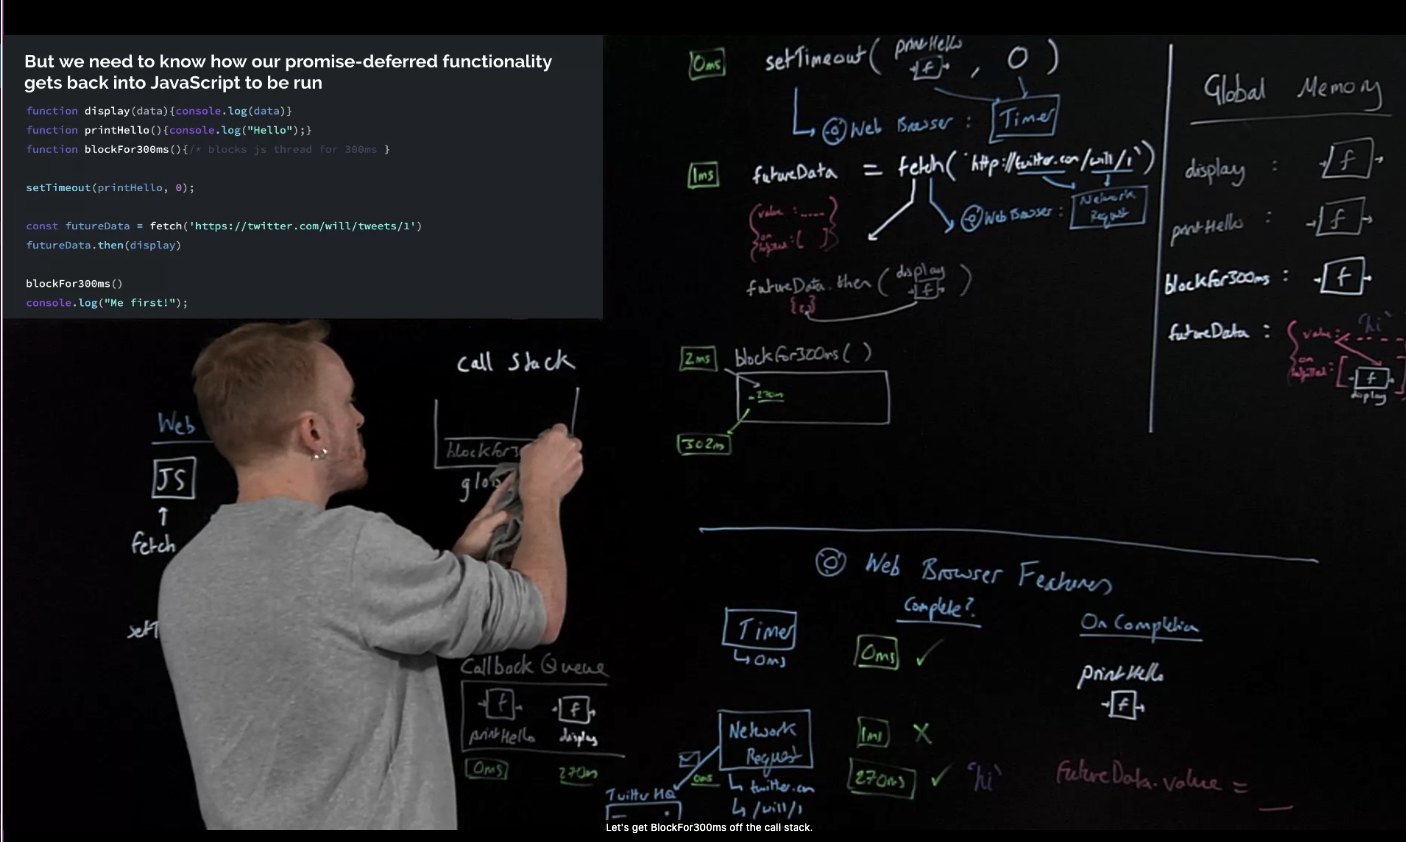 But we need to know how our promise-deferred functionality
gets back into JavaScript to be run
function display(data){console.log(data)}
function printHello(){console.log("Hello");}
function blockFor300ms(){/* blocks js thread for 300ms }
setTimeout(printHello, 0);
const futureData = fetch('https://twitter.com/will/tweets/1')
futureData.then(display)
blockFor300ms()
console.log("Me first!");
0ms
setTimeout( printHello , 0 )
f
Web Browser : Timer
1ms
futureData = fetch('http://twitter.com/will/1')
value :
on
: [ ]
Web Browser : Network
Request
futureData.then ( display )
f
2ms
blockfor300ms( )
- 270ms
302ms
Global Memory
display : f
printHello : f
blockfor300ms : f
futureData :
value : 'hi'
on
f
display
Call Stack
blockfor3
glo
Web
JS
fetch
setT
Callback Queue
f f
printHello display
0ms 270ms
Web Browser Features
Complete? On Completion
Timer
0ms
0ms ✓
printHello
f
Network
Request
twitter.com
/will/1
0ms
Twitter HQ
1ms X
270ms ✓ 'hi'
futureData.value = __
Let's get BlockFor300ms off the call stack.